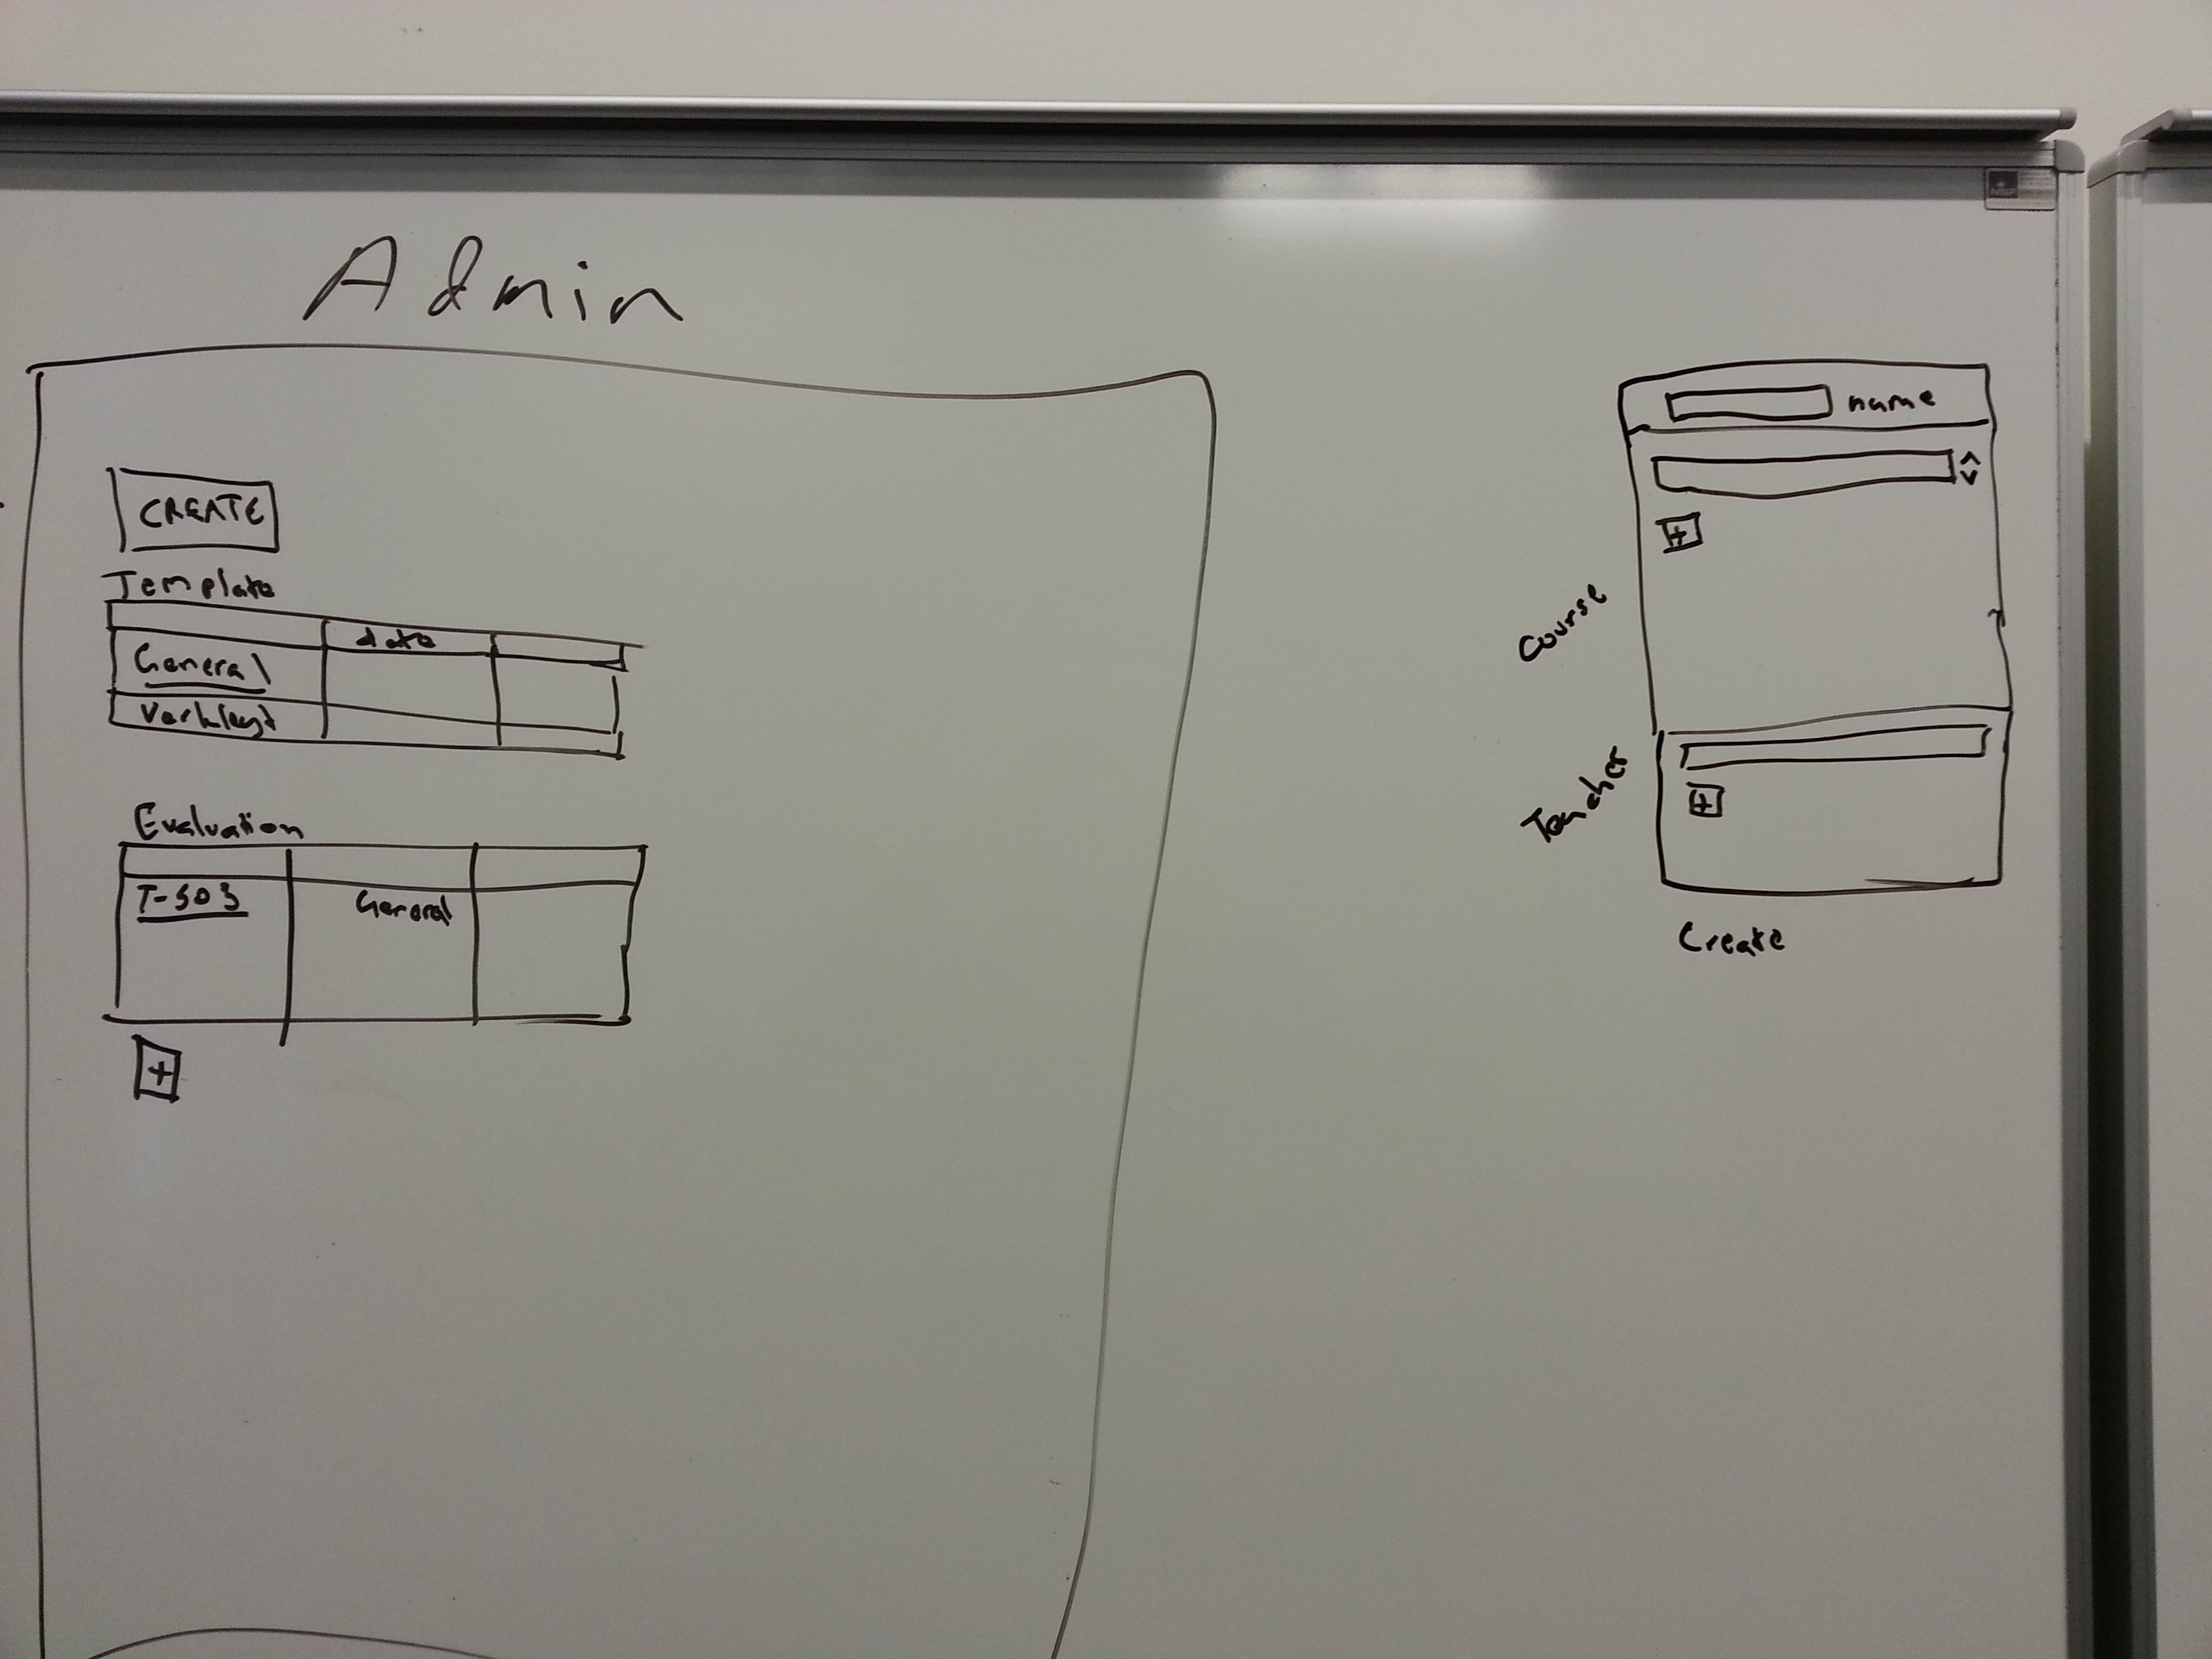 Admin
CREATE
Template
date
General
Evaluation
T-503
General
+
name
+
Course
Teacher
+
Create